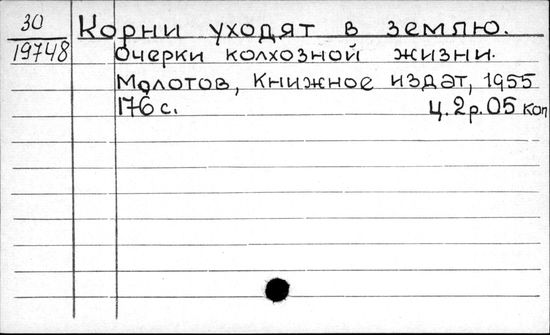 30 Корни уходят в землю.
19748 Очерки колхозной жизни.
Молотов, Книжное издат, 1955
176 с. ц. 2 р. 05 коп